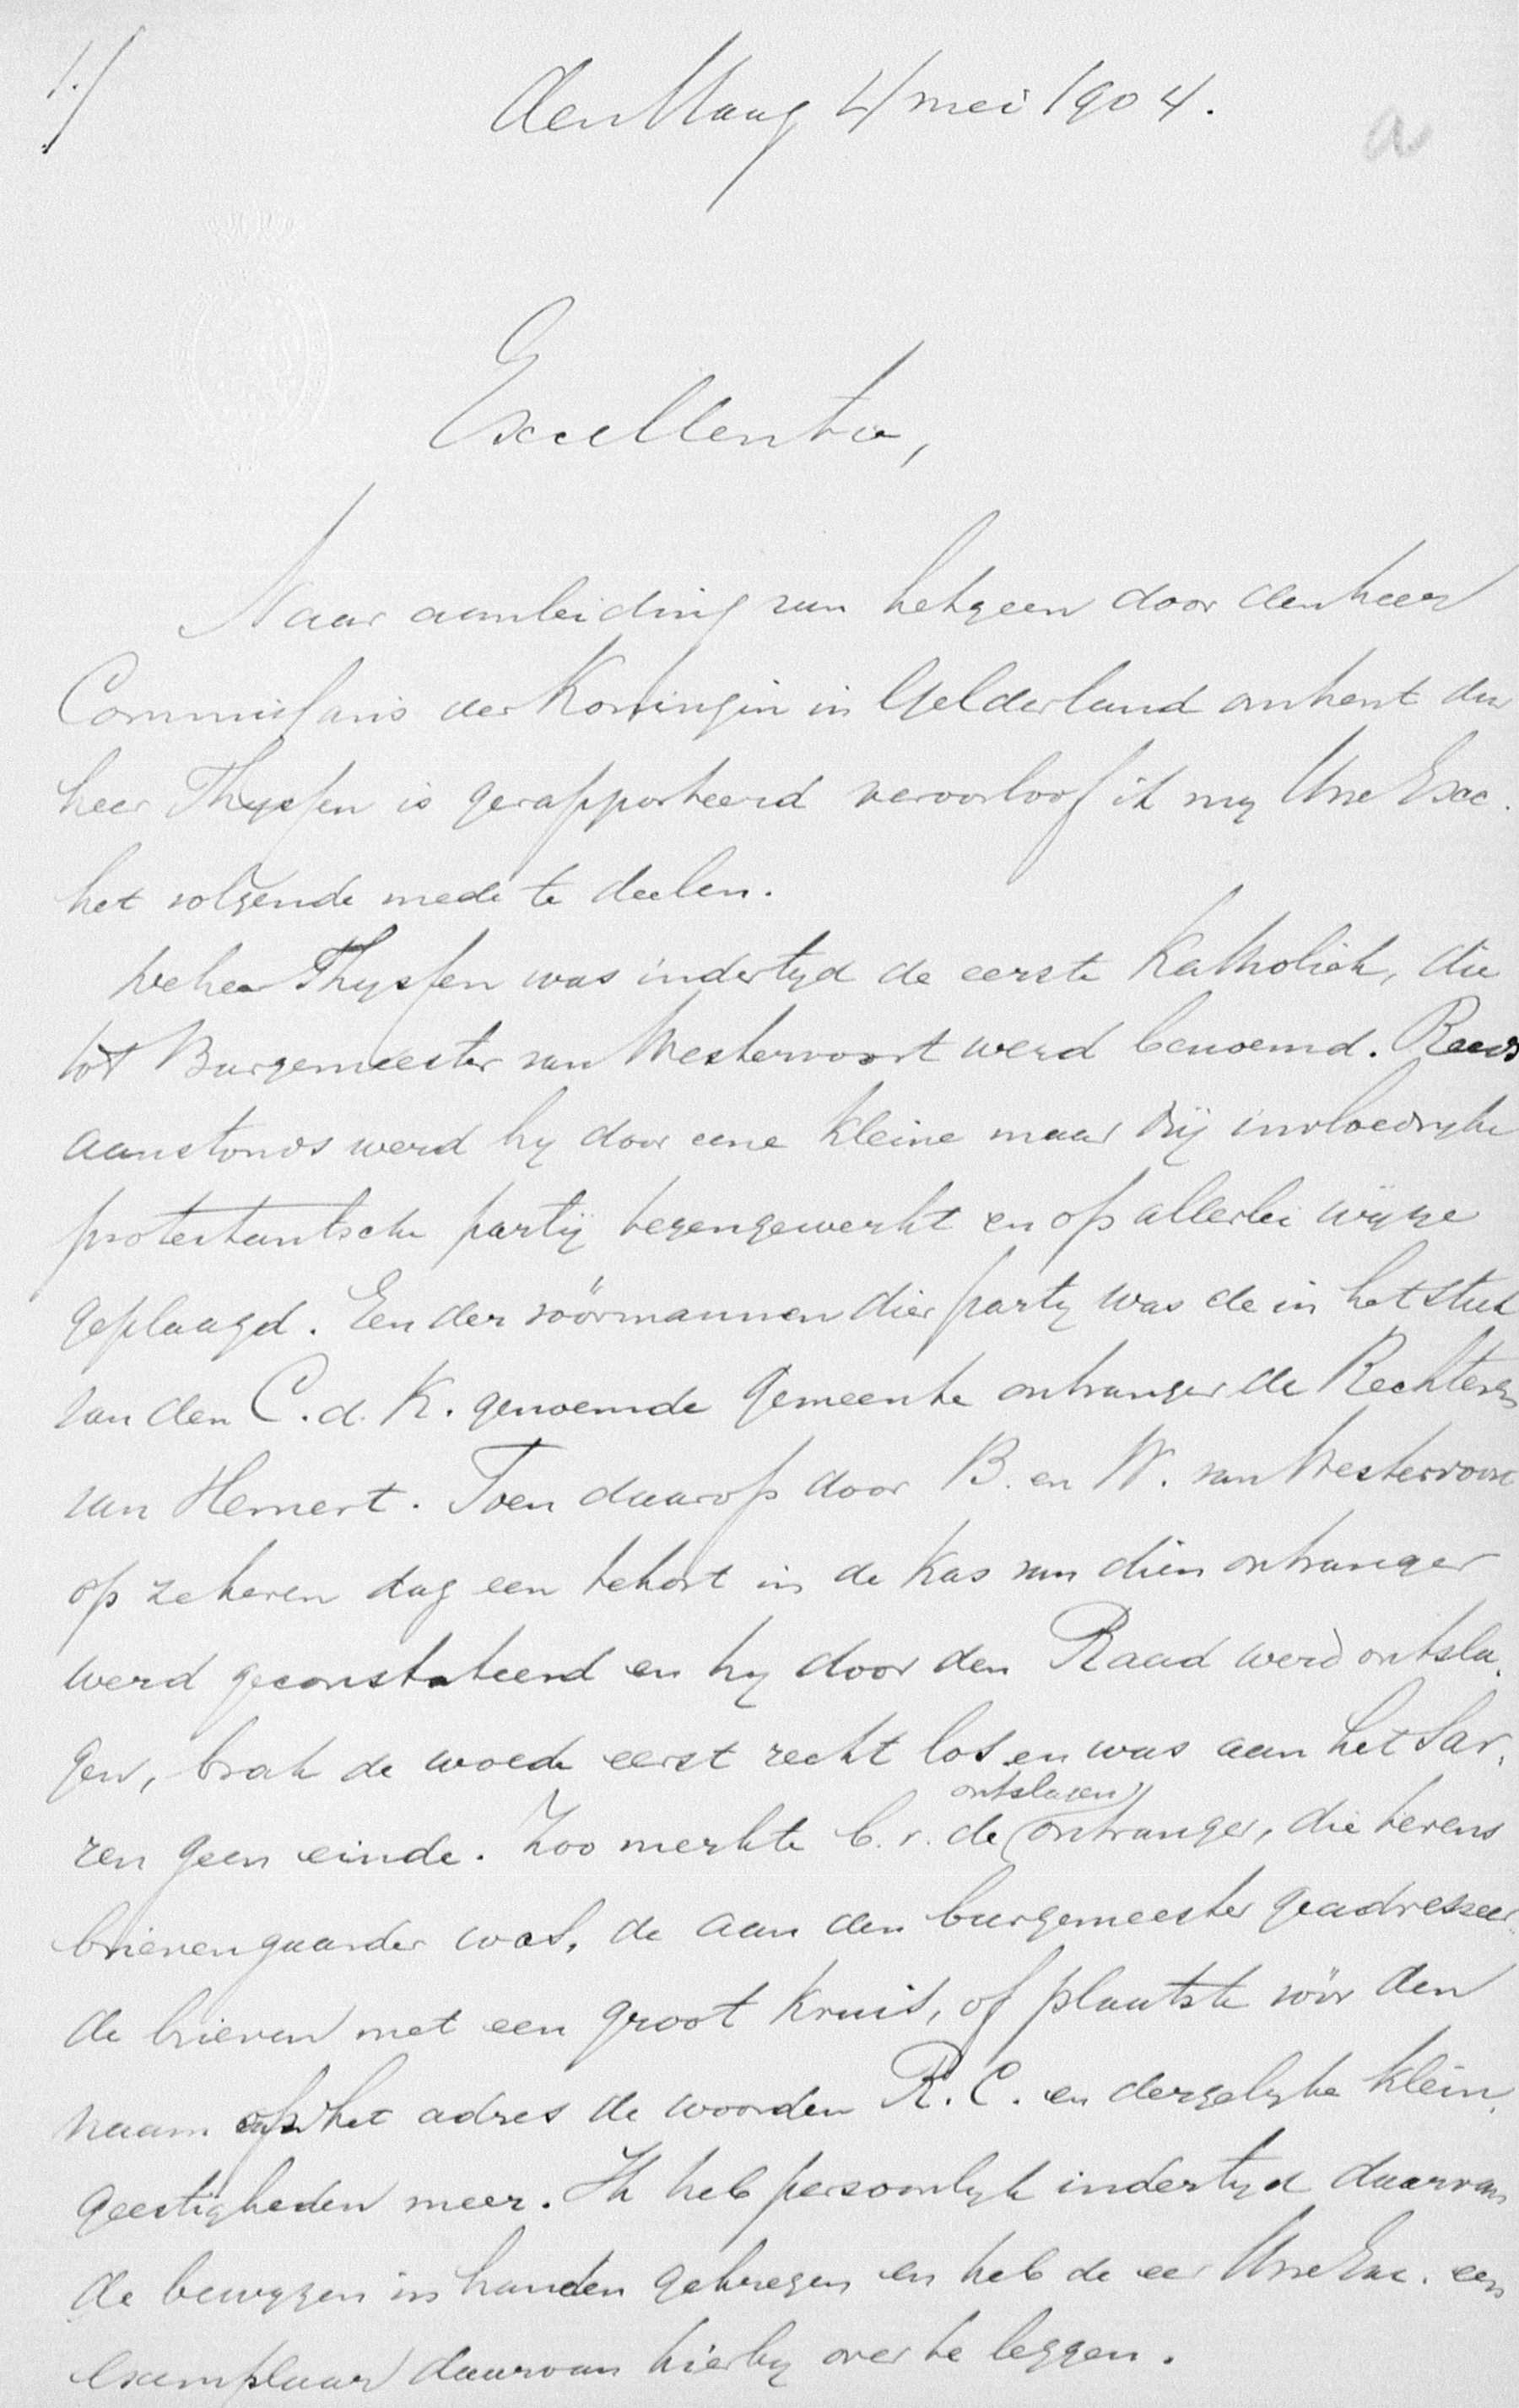 1./
den Haag 4 mei 1904.
a
Excellentie,
Naar aanleiding van hetgeen door den heer
Commissaris der Koningin in Gelderland omtrent den
heer Thyssen is gerapporteerd veroorloof ik my Uwe Exc.
het volgende mede te deelen.
De heer Thyssen was indertyd de eerste Katholiek, die
tot Burgemeester van Westervoort werd benoemd. Reeds
aanstonds werd hy door eene kleine maar vrij invloedryke
protestantsche partij tegengewerkt en op allerlei wijze
geplaagd. Een der vóórmannen dier party was de in het stuk
van den C.d.K. genoemde gemeente ontvanger de Rechteren
van Hemert. Toen daarop door B. en W. van Westervoort
op zekeren dag een tekort in de kas van dien ontvanger
werd geconstateerd en hy door den Raad werd ontsla-
gen, brak de woede eerst recht los en was aan het sar-
ren geen einde. Zoo merkte b.v. de ontslagen ontvanger, die tevens
brievengaarder was, de aan den burgemeester geadresseer-
de brieven met een groot kruis, of plaatste vóór den
naam op het adres de woorden R.C. en dergelyke klein-
geestigheden meer. Ik heb persoonlyk indertyd daarvan
de bewyzen in handen gekregen en heb de eer Uwe Exc. een
exemplaar daarvan hierby over te leggen.